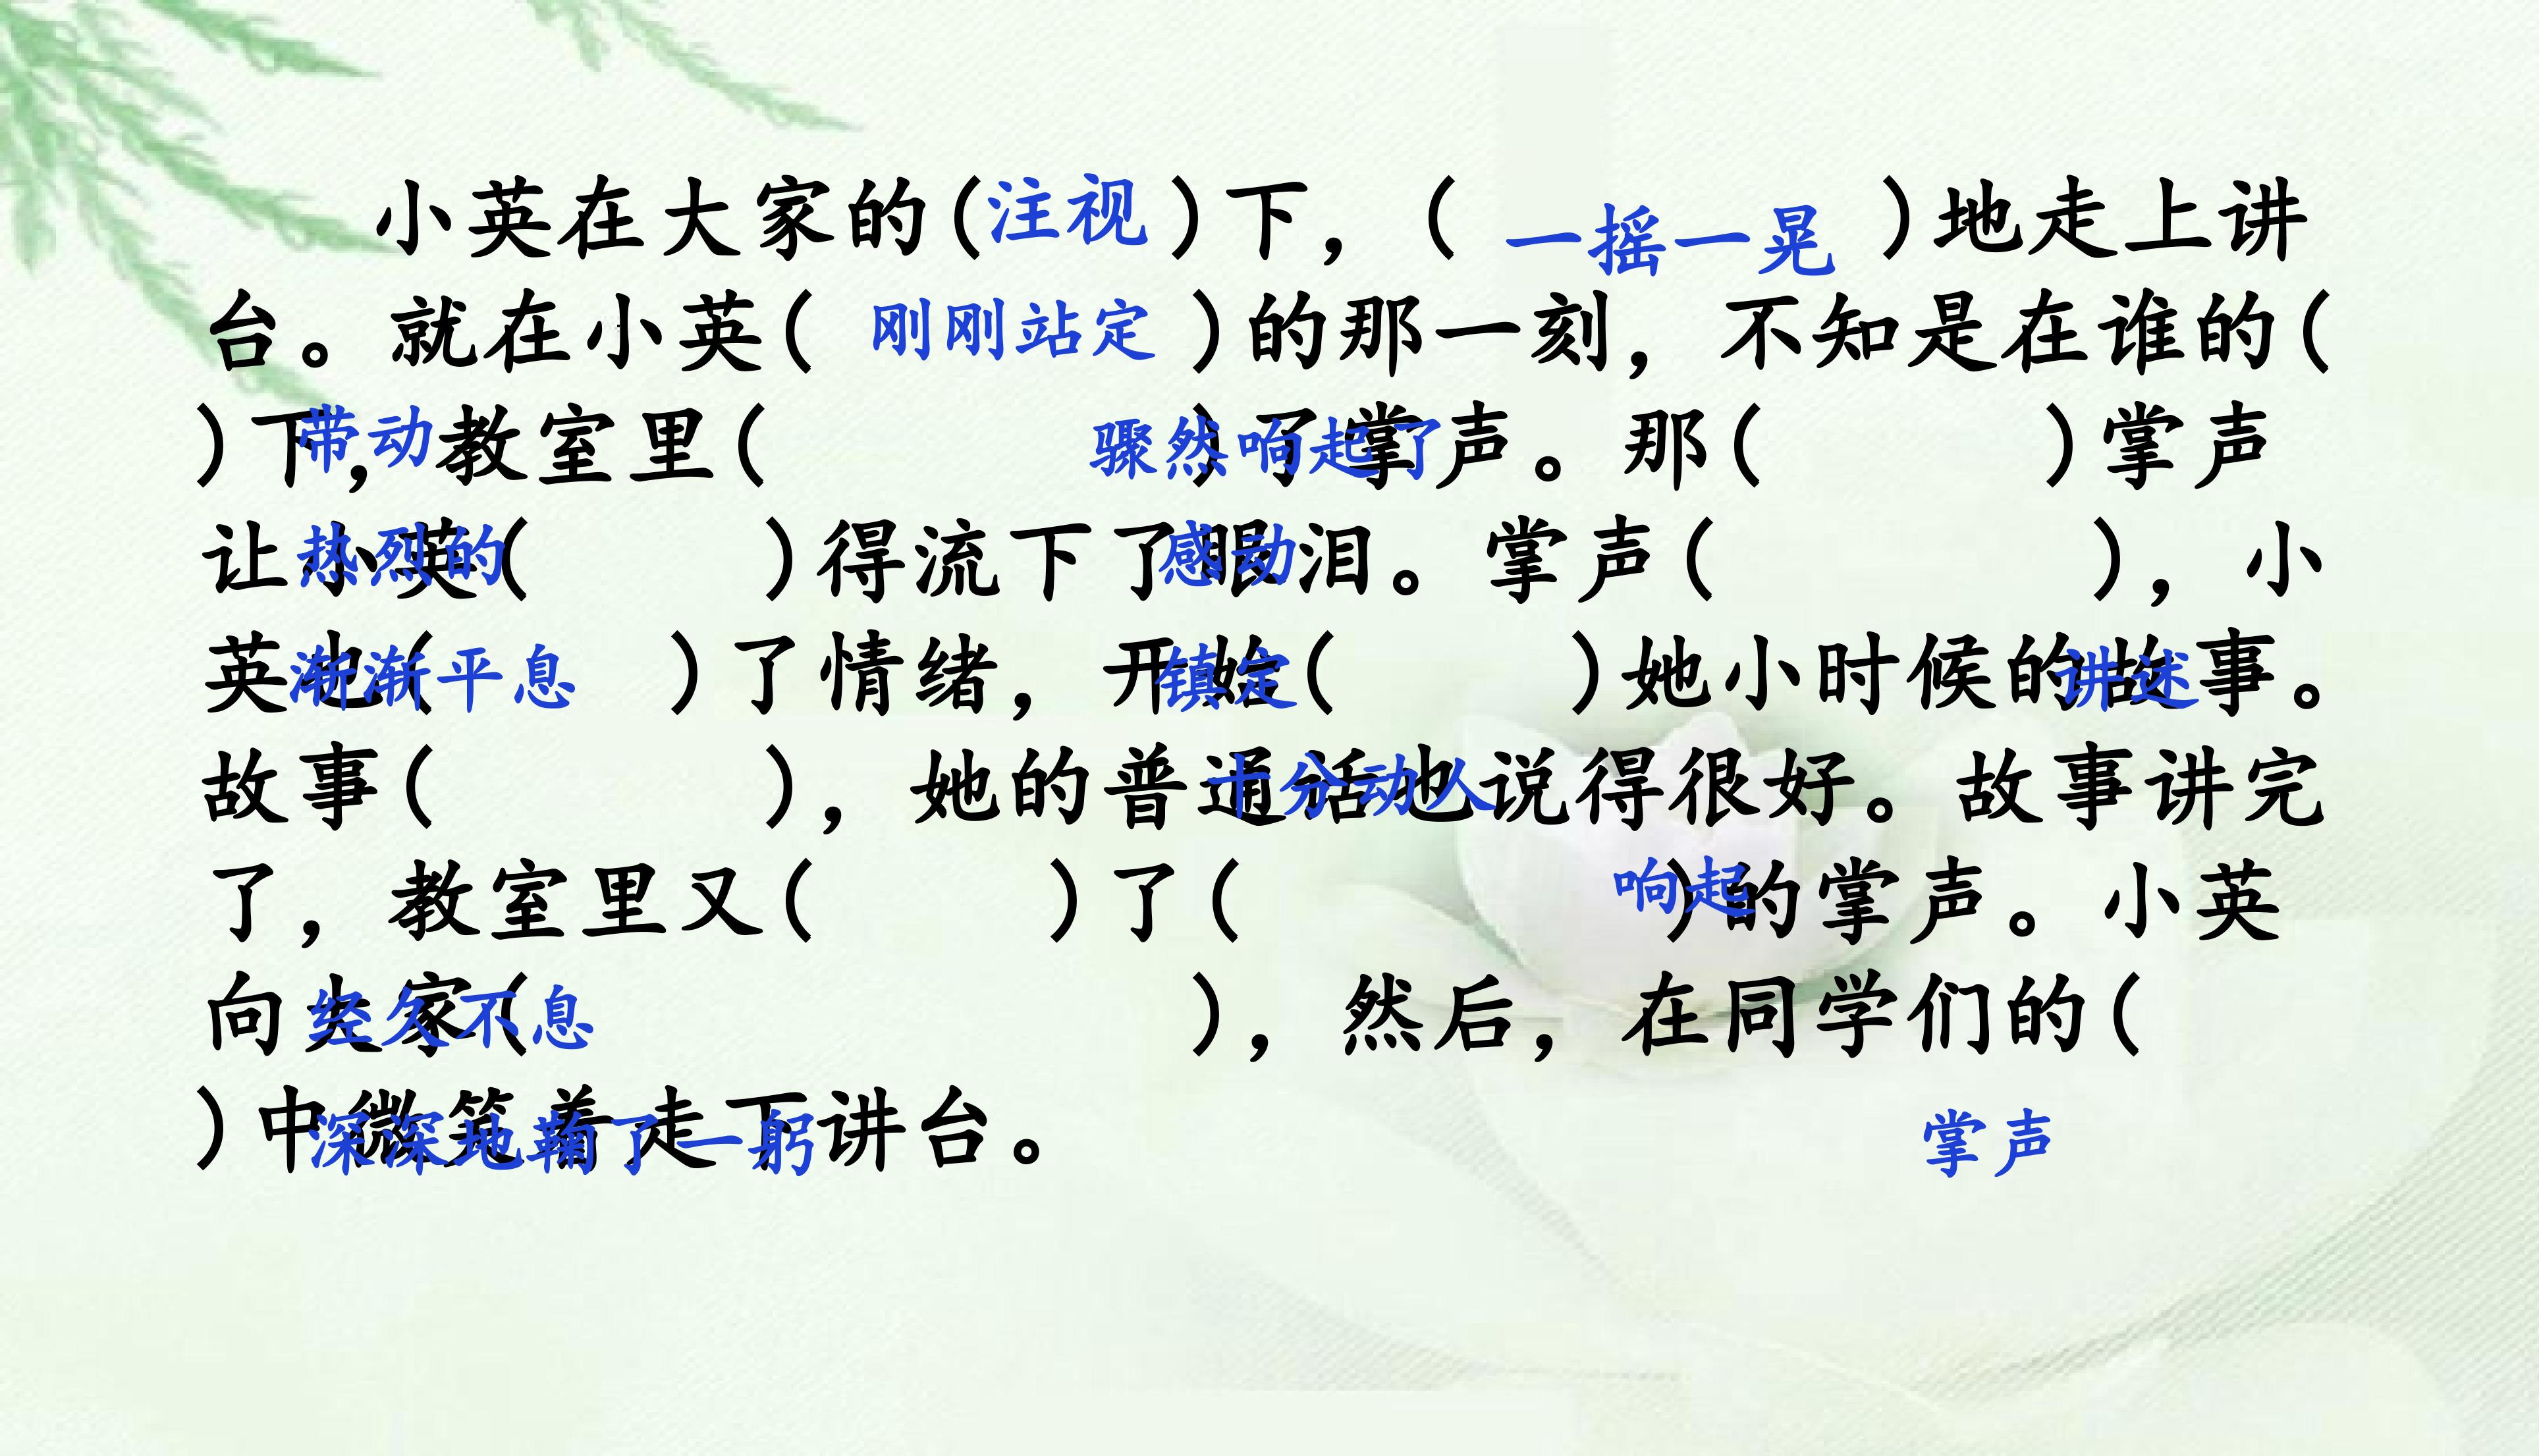 小英在大家的(注视)下，(一摇一晃)地走上讲
台。就在小英(刚刚站定)的那一刻，不知是在谁的(
)下，教室里( )了掌声。那( )掌声
带动
骤然响起了
让小英( )得流下了眼泪。掌声( )，小
热烈的
感动
英也( )了情绪，开始( )她小时候的故事。
渐渐平息
镇定
讲述
故事( )，她的普通话也说得很好。故事讲完
十分动人
了，教室里又( )了( )的掌声。小英
响起
向大家( )，然后，在同学们的(
经久不息
)中微笑着走下讲台。
深深地鞠了一躬
掌声